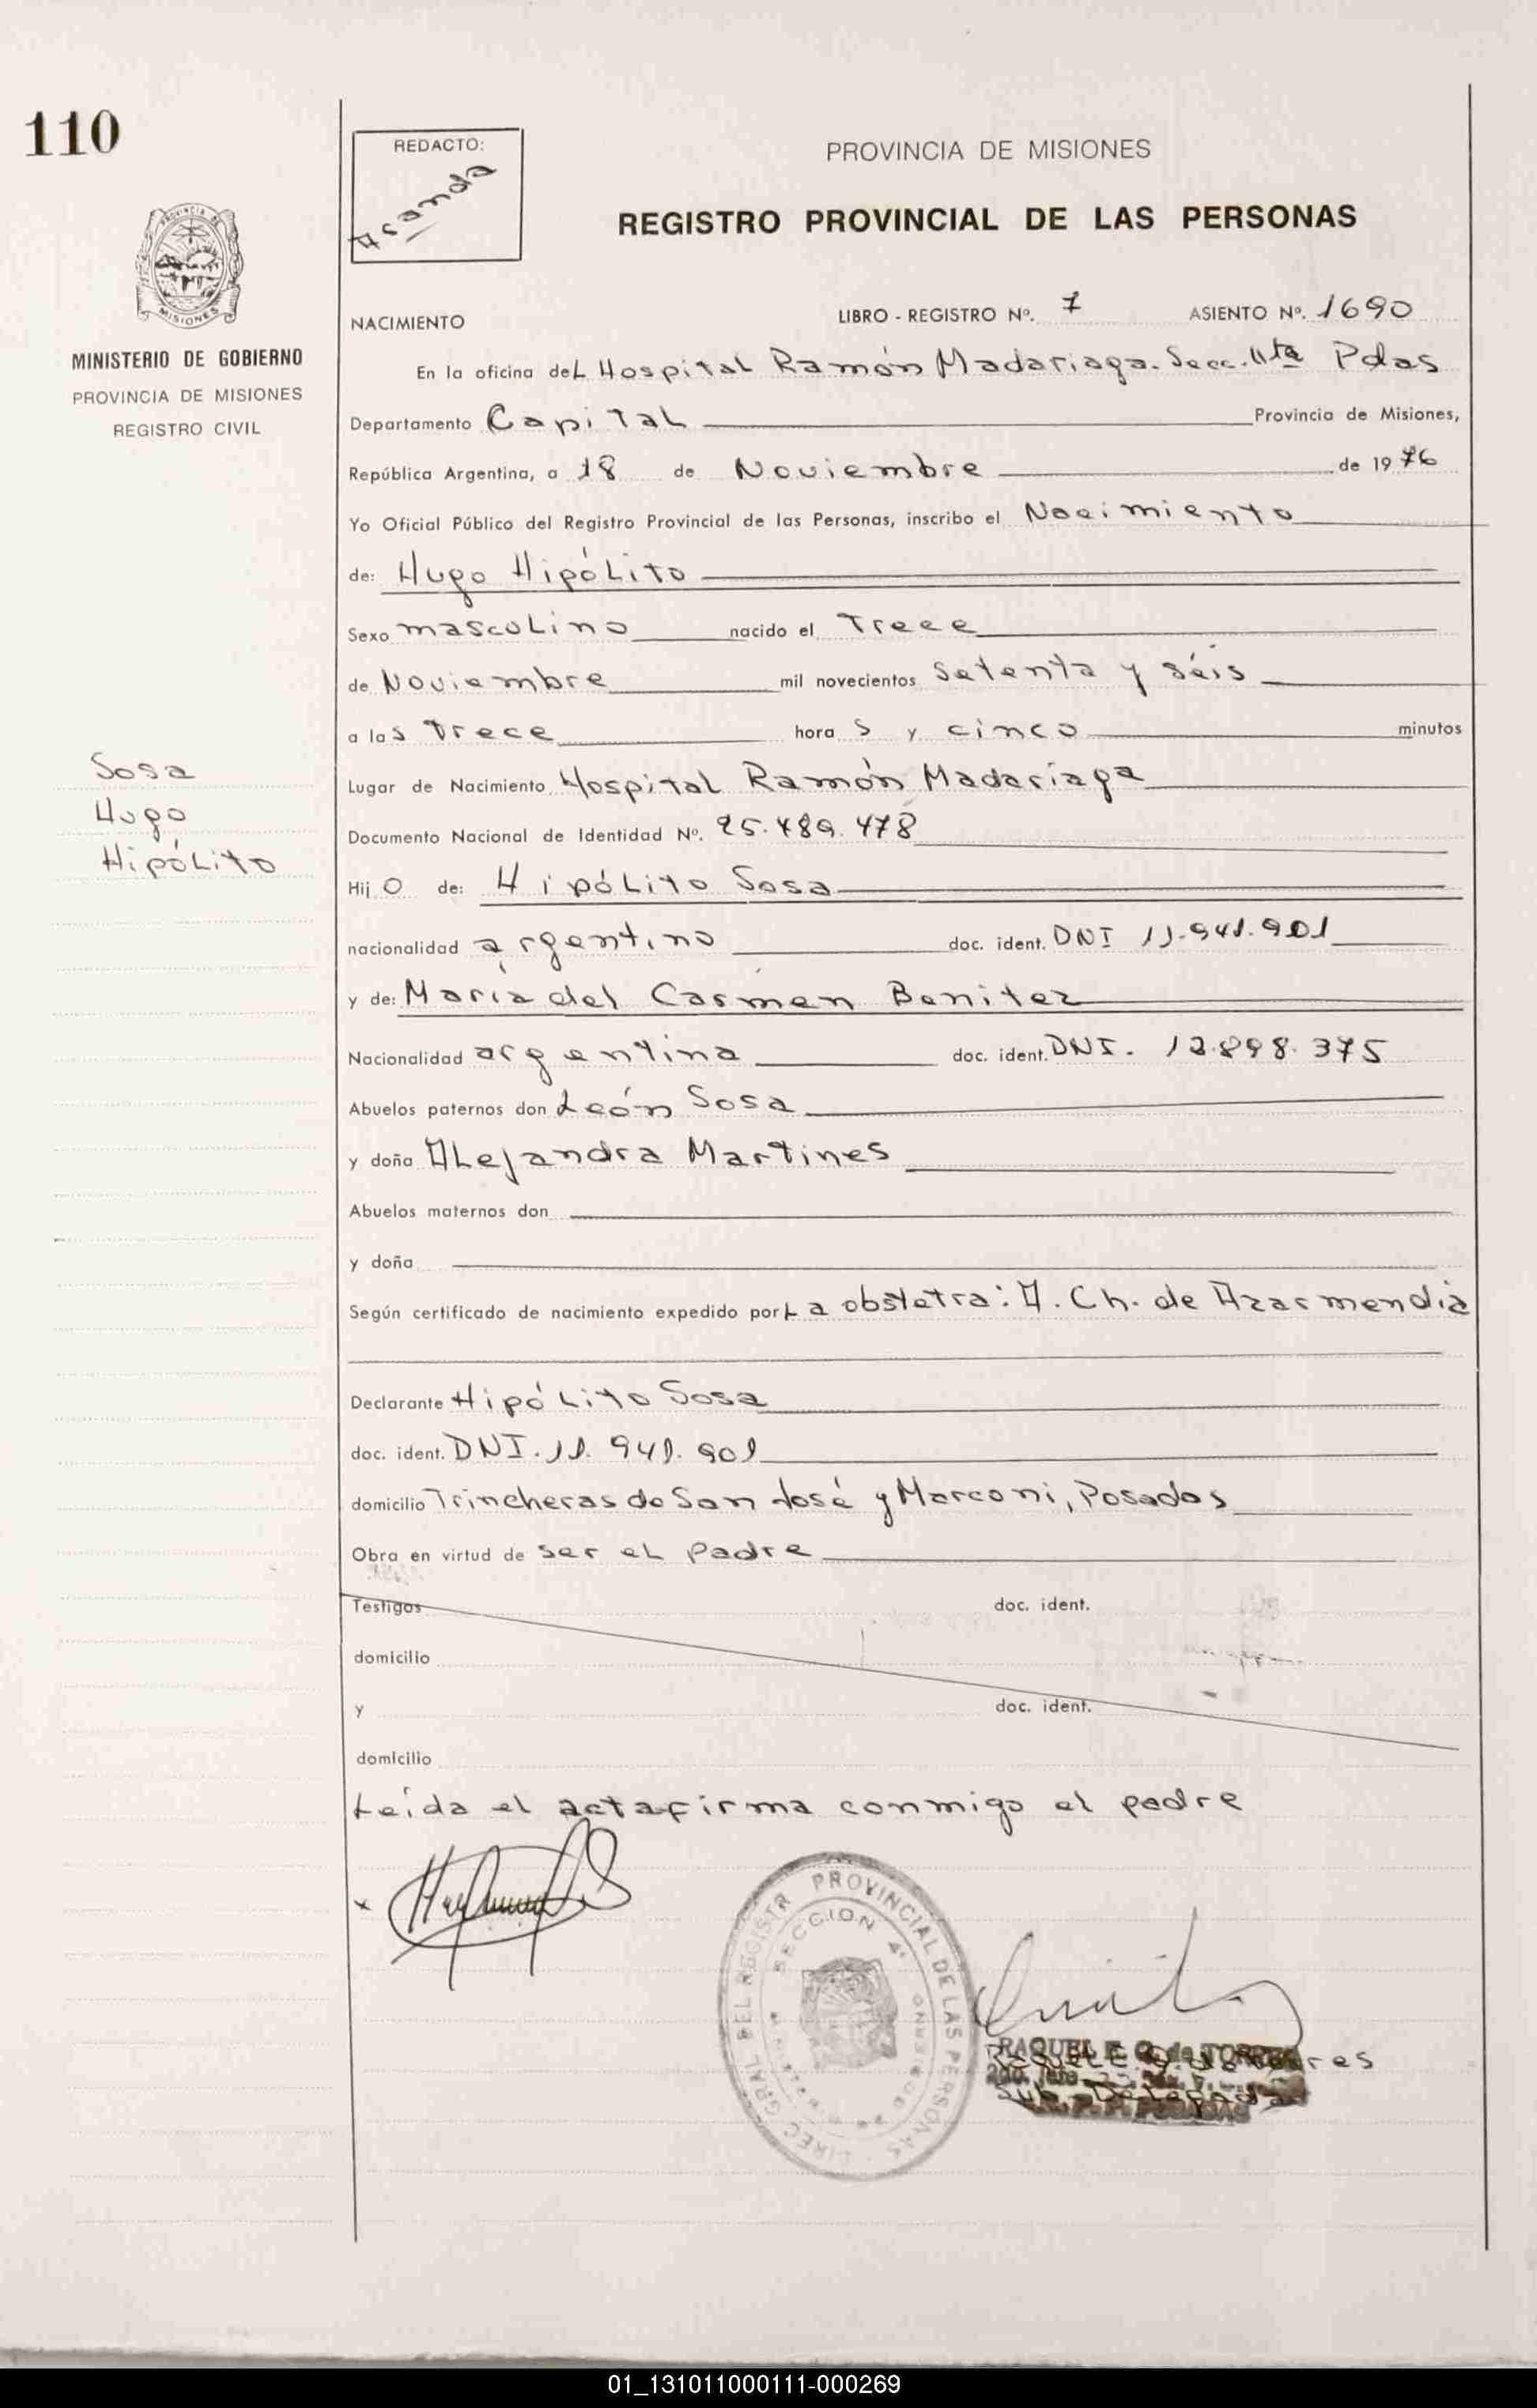 110
REDACTO:
PROVINCIA DE MISIONES
REGISTRO PROVINCIAL DE LAS PERSONAS
PROVINCIA DE
MISIONES
MINISTERIO DE GOBIERNO
PROVINCIA DE MISIONES
REGISTRO CIVIL
NACIMIENTO
LIBRO - REGISTRO Nº. 7 ASIENTO Nº. 1690
En la oficina deL Hospital Ramón Madariaga. Secc. 4ta Pdas
Departamento Capital Provincia de Misiones,
República Argentina, a 18 de Noviembre de 1976
Yo Oficial Público del Registro Provincial de las Personas, inscribo el Nacimiento
de: Hugo Hipólito
Sexo masculino nacido el Trece
de Noviembre mil novecientos setenta y séis
a las trece hora s y cinco minutos
Sosa
Hugo
Hipólito
Lugar de Nacimiento Hospital Ramón Madariaga
Documento Nacional de Identidad Nº. 25.489.478
Hij o de: Hipólito Sosa
nacionalidad argentino doc. ident. DNI 11.941.901
y de: María del Carmen Benitez
Nacionalidad argentina doc. ident. DNI. 12.898.375
Abuelos paternos don León Sosa
y doña Alejandra Martines
Abuelos maternos don
y doña
Según certificado de nacimiento expedido por La obstetra: A. Ch. de Azarmendia
Declarante Hipólito Sosa
doc. ident. DNI. 11. 941. 901
domicilio Trincheras de San José y Marconi, Posadas
Obra en virtud de ser el padre
Testigos doc. ident.
domicilio
y doc. ident.
domicilio
Leída el acta firma conmigo el padre
DIREC. GRAL. DEL REGISTR PROVINCIAL DE LAS PERSONAS
SECCION 4ª
RAQUEL E. G. de TORRES
Sub-Delegada
01_131011000111-000269